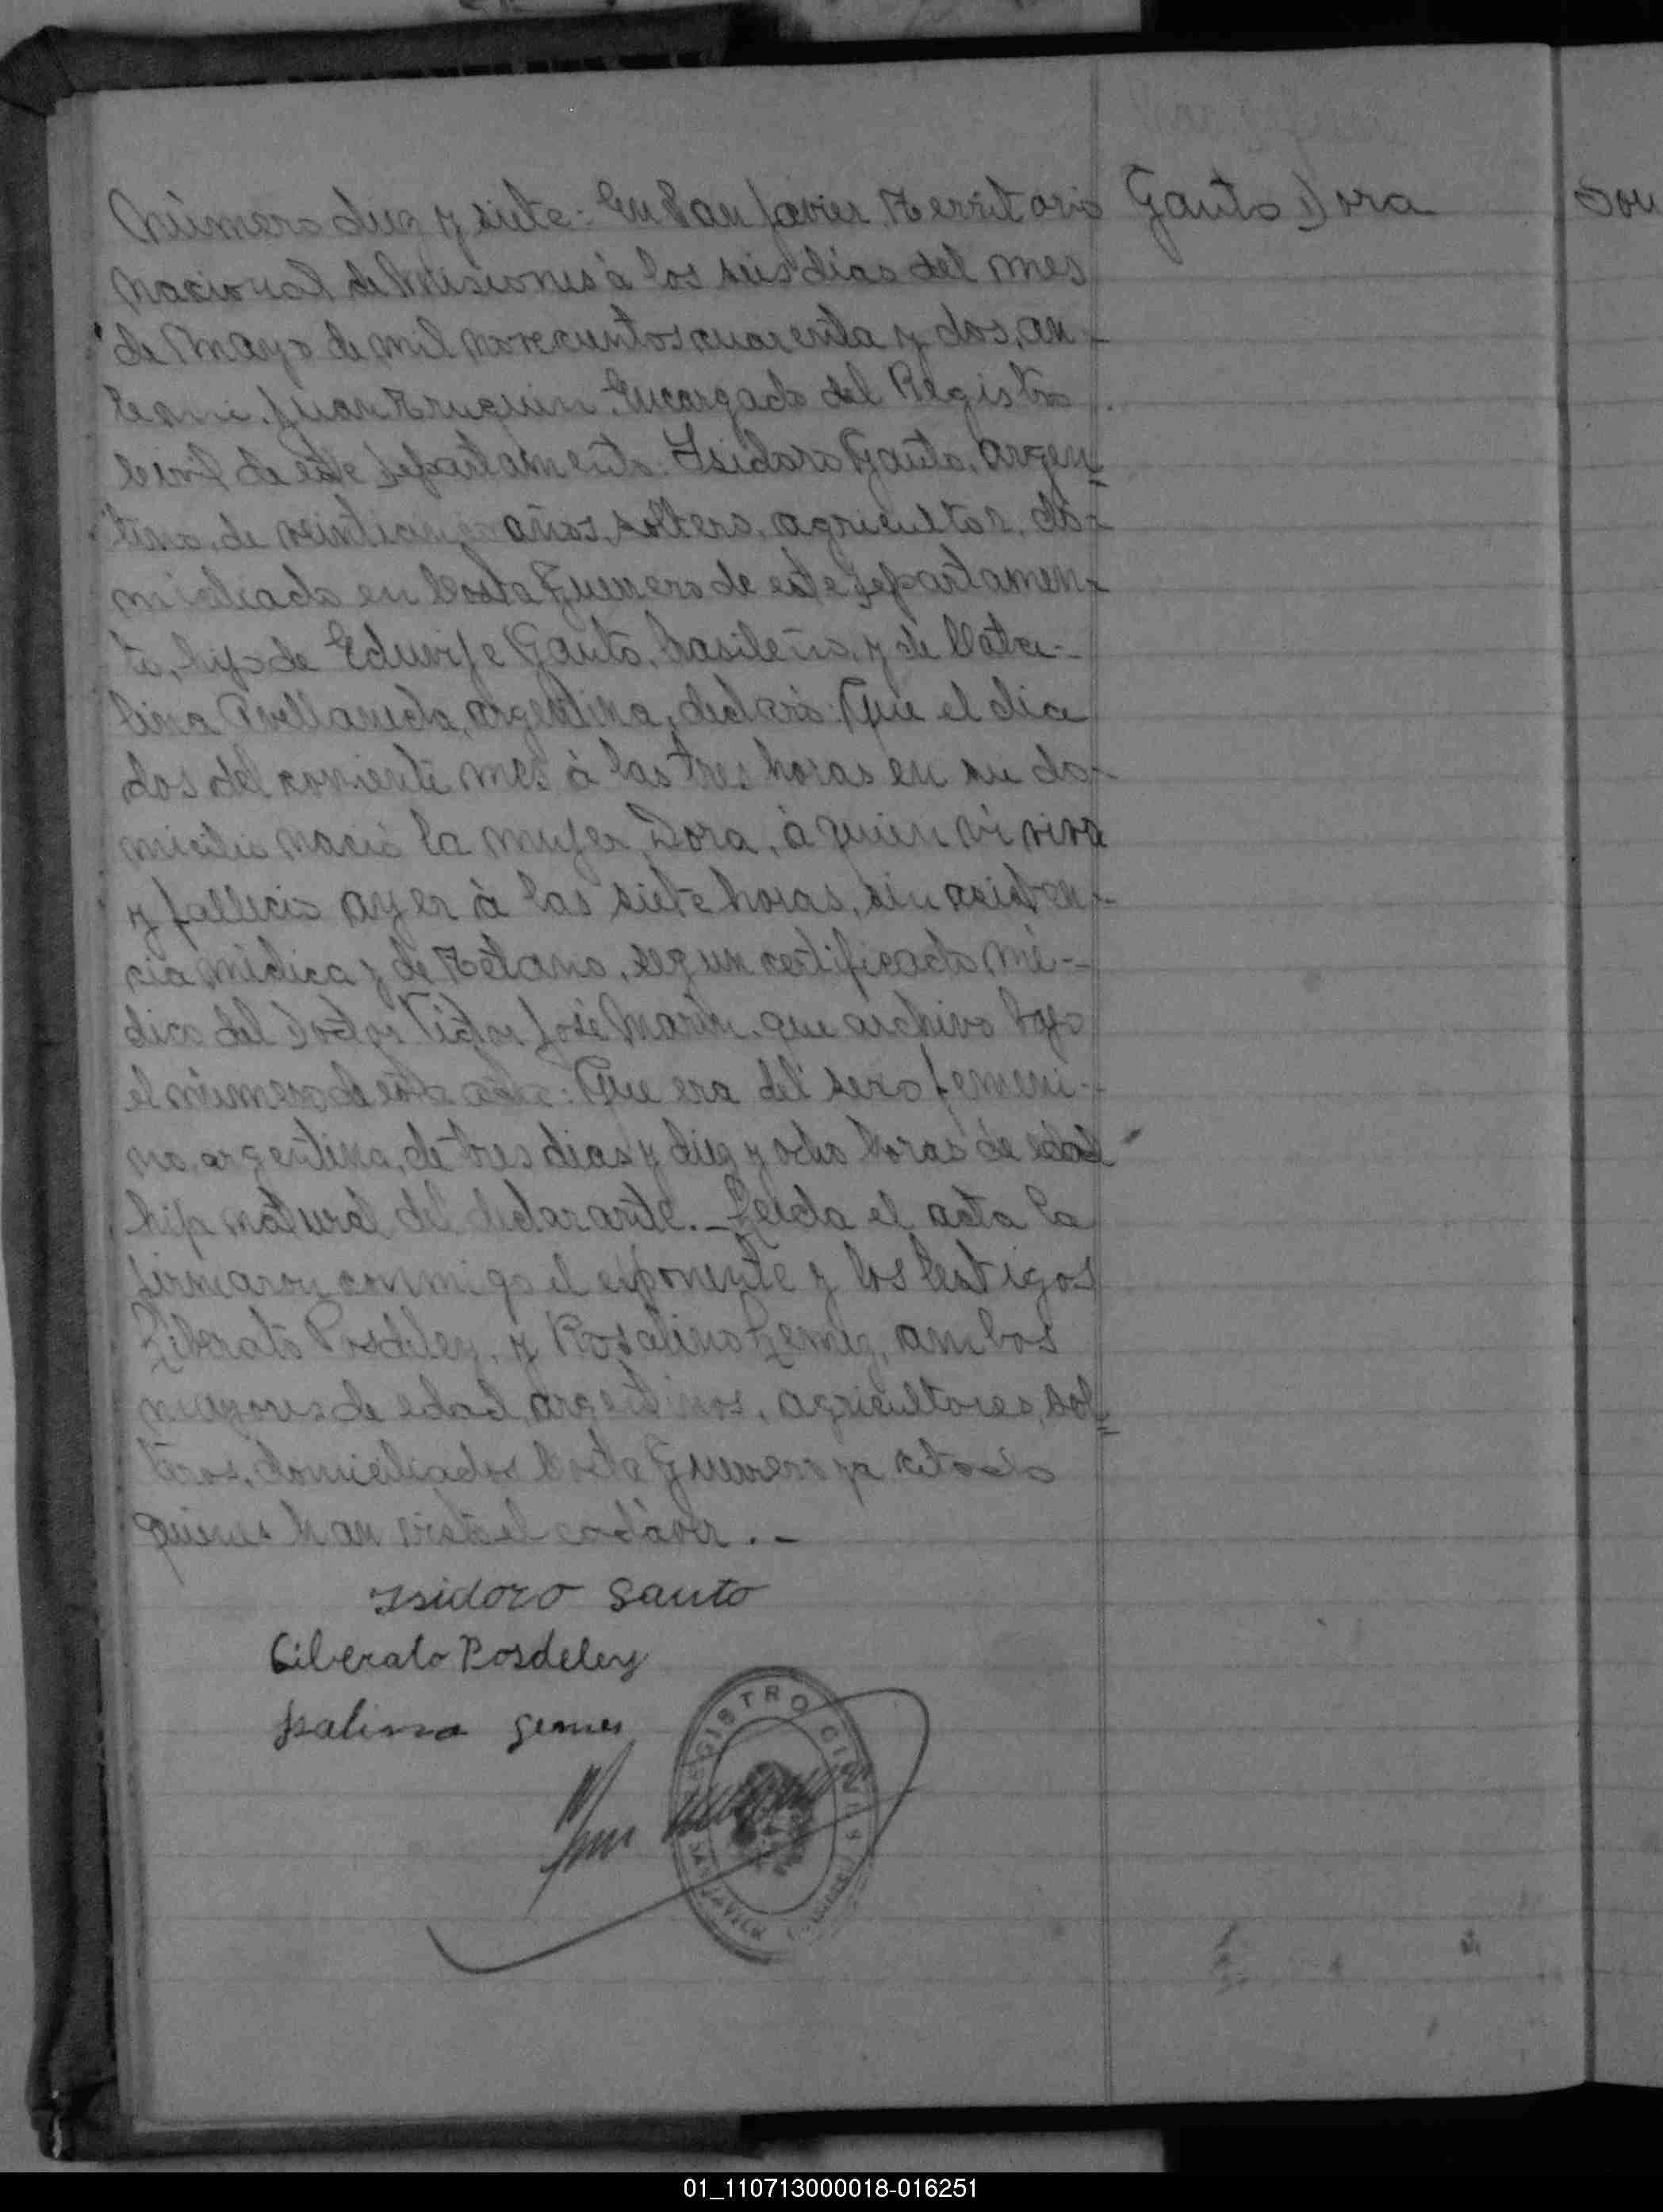 Gauto Dora
Número diez y siete: En San Javier, Territorio
Nacional de Misiones á los seis dias del mes
de Mayo de mil novecientos cuarenta y dos, an-
te mi, Juan Truquin, Encargado del Registro
Civil de este Departamento: Isidoro Gauto, argen=
tino, de veinticinco años, soltero, agricultor, do=
miciliado en Costa Guerrero de este Departamen=
to, hijo de Eduvije Gauto, brasileño, y de Cata-
lina Avellaneda, argentina, declaró: Que el dia
dos del corriente mes á las tres horas en su do-
micilio nació la mujer Dora, á quien ví viva
y falleció ayer á las siete horas, sin asisten-
cia médica y de Tétano, segun certificado mé-
dico del Doctor Victor José Marin que archivo bajo
el número de esta acta: Que era del sexo femeni-
no, argentina, de tres dias y diez y ocho horas de edad
hija natural del declarante._Leida el acta la
firmaron conmigo el exponente y los testigos
Liberato Posdeley, y Rosalino Gemez, ambos
mayores de edad, argentinos, agricultores, sol=
teros, domiciliados Costa Guerrero ya citado
quienes han visto el cadáver._
Isidoro Gauto
Liberato Posdeley
gemes
REGISTRO CIVIL
SAN JAVIER
01_110713000018-016251